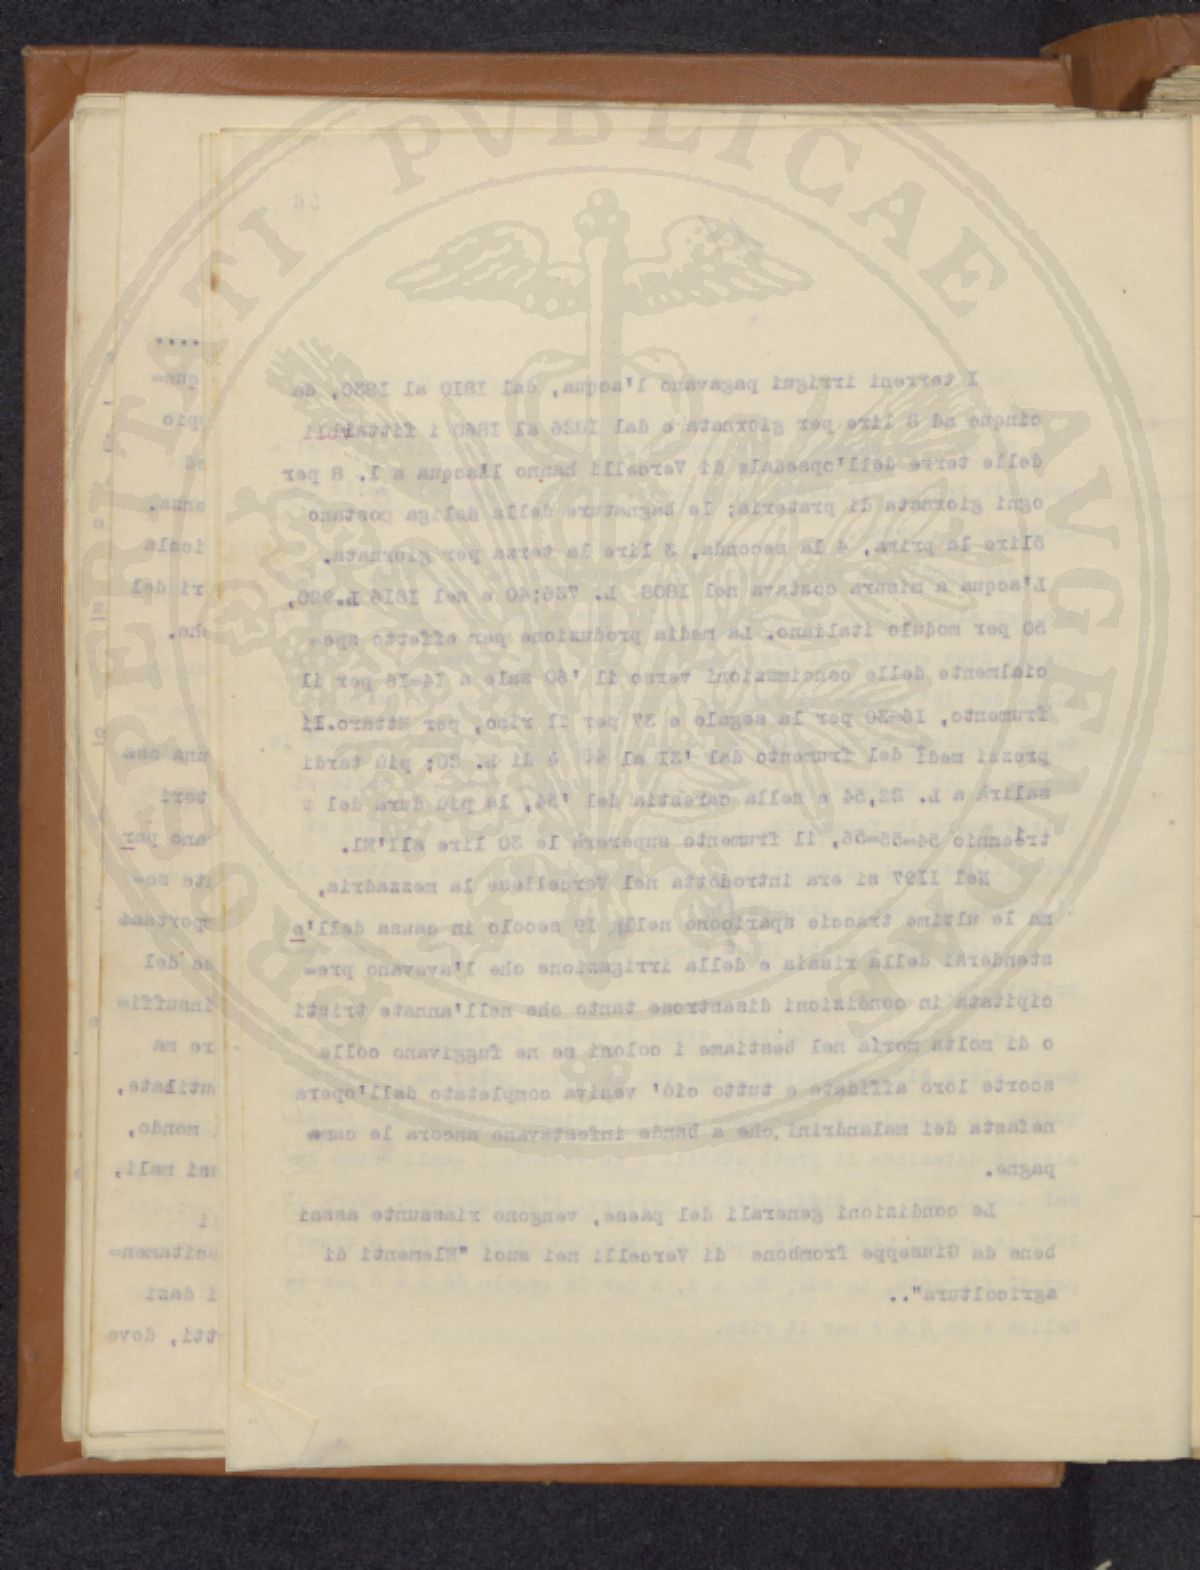 I terreni irrigui pagavano l'acqua, dal 1810 al 1830, da
cinque ad 8 lire per giornata e dal 1826 al 1860 i fittabili
delle terre dell'ospedale di Vercelli hanno l'acqua a l. 8 per
ogni giornata di prateria; le bagnature della meliga costano
5lire la prima, 4 la seconda, 3 lire la terza per giornata.
L'acqua a misura costava nel 1808 L. 736:40 e nel 1816 L.920,
50 per modulo italiano. La media produzione per effetto spe=
cialmente delle concimazioni verso il '60 sale a 14=16 per il
frumento, 16=30 per la segale e 37 per il riso, per ettaro.Ii
prezzi medi del frumento dal '31 al è di L. 20; più tardi
salirà a L. 22,54 e nella carestia del '54, la più dura del
triennio 54=55=56, il frumento supererà le 30 lire all'El.
Nel 1197 si era introdotta nel Vercellese la mezzadria,
ma le ultime traccie sparicono nella 19 secolo in causa dell'e
stendersi della risaia e della irrigazione che l'avevano pre=
cipitata in condizioni disastrose tanto che nell'annate tristi
o di molta moria nel bestiame i coloni se ne fuggivano colle
scorte loro affidate e tutto ciò' veniva completato dall'opera
nefasta dei malandrini che a bande infestavano ancora le cam=
pagne.
Le condizioni generali del paese, vengono riassunte assai
bene da Giuseppe frombone di Vercelli nei suoi "Elementi di
agricoltura"..
PVBLICAE
AVGENDAE
PROSPERITATI
....
que=
pio
ad
enza.
icola
ri del
che.
una osa
teri
ano par
nte so=
portant
se del
insuffi=
re ma
mutilate,
mondo,
sni mali,
li
scitamen=
i dazi
tti, dove